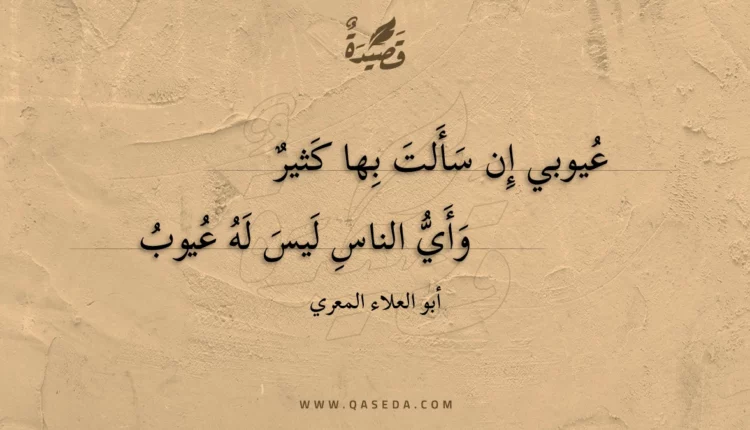 قَصِيدَةٌ
عُيوبي إِن سَأَلتَ بِها كَثيرٌ
وَأَيُّ الناسِ لَيسَ لَهُ عُيوبُ
أبو العلاء المعري
WWW.QASEDA.COM